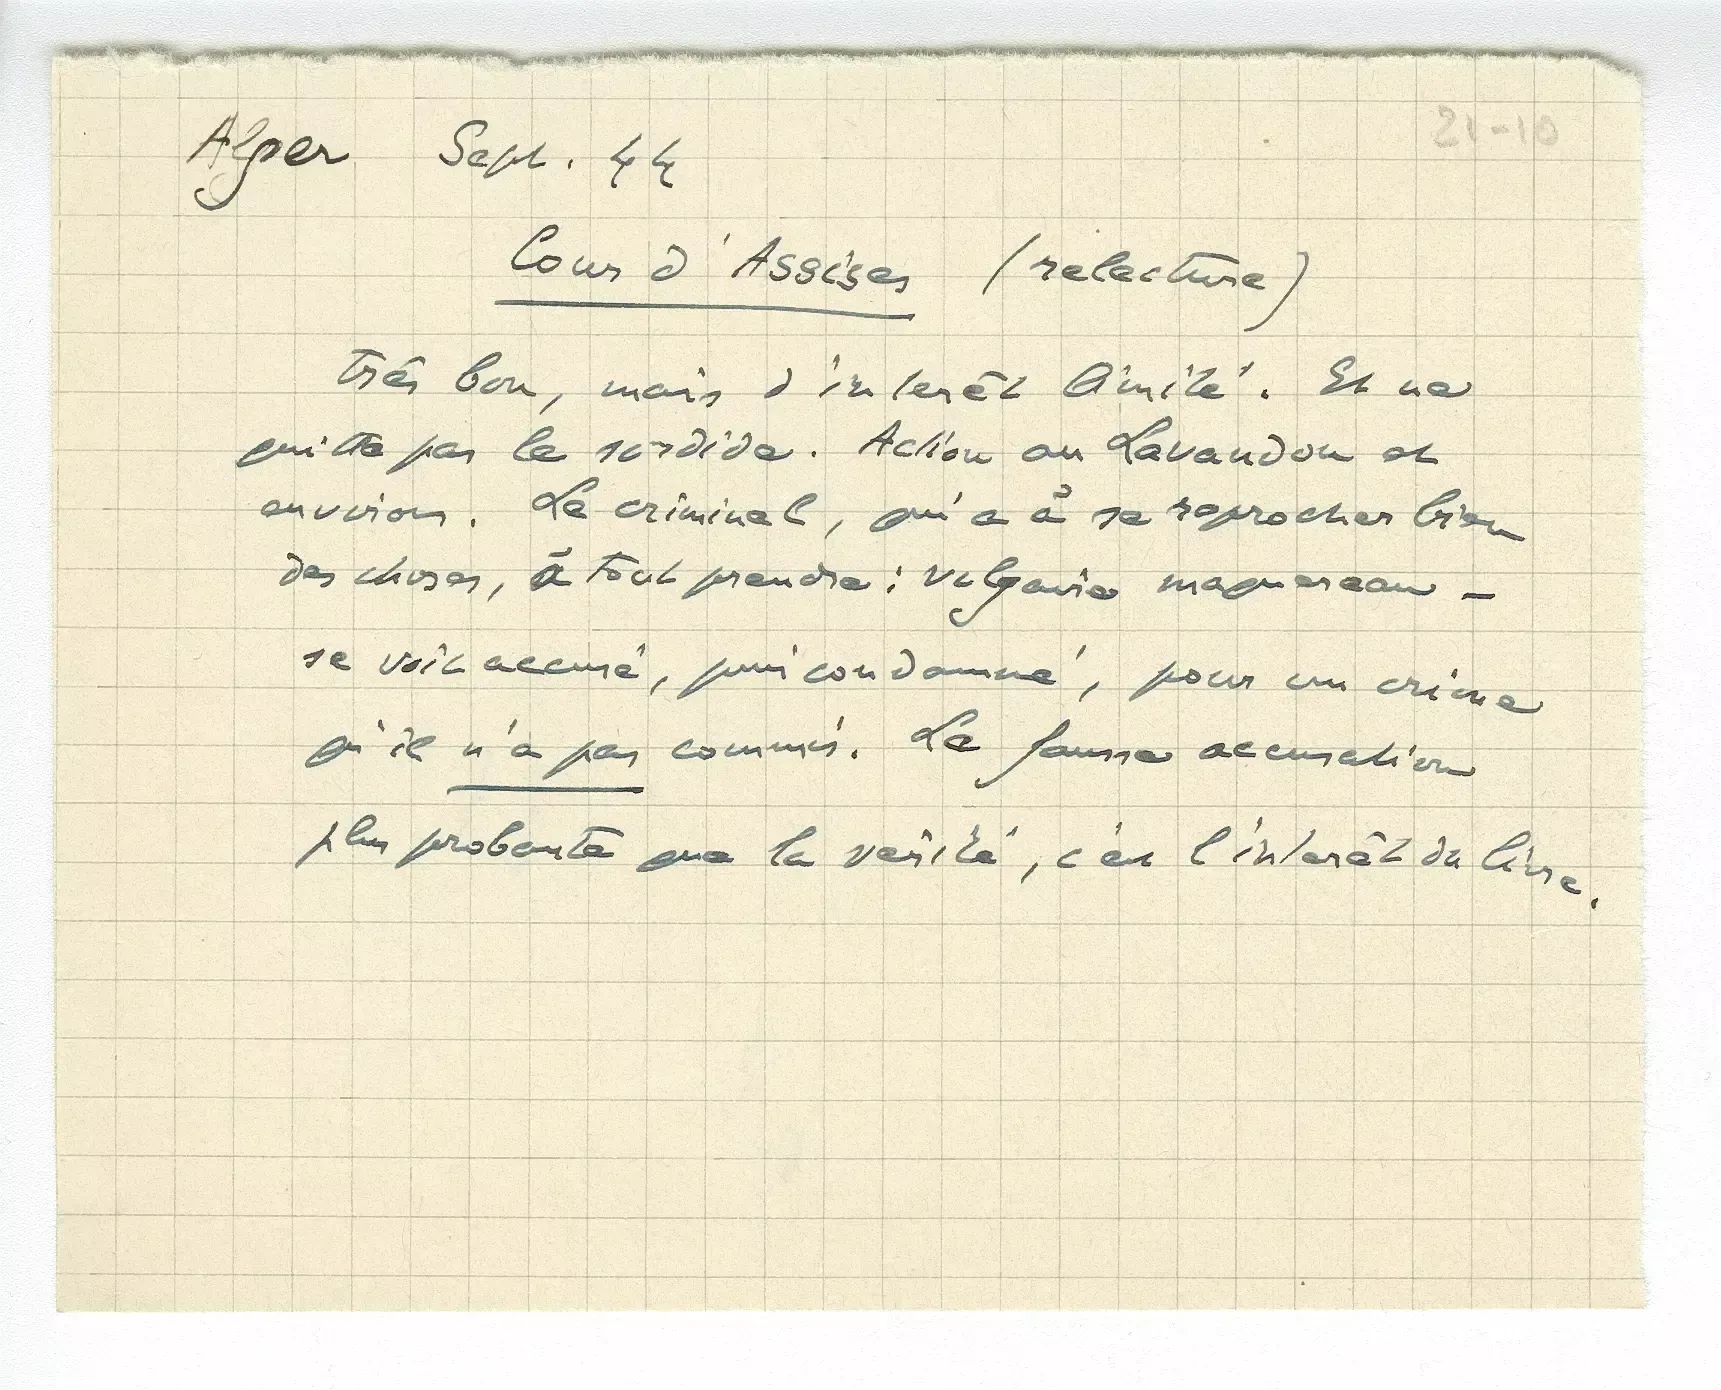 21-10
Alger Sept. 44
Cour d'Assises (relecture)
Très bon, mais d'interêt limité. Et ne
quitte pas le sordide. Action au Lavandou et
environs. Le criminel, qui a à se reprocher bien
des choses, à tout prendre : vulgaire maquereau –
se voit accusé, puis condamné, pour un crime
qu'il n'a pas commis. La fausse accusation
plus probante que la vérité, c'est l'interêt du livre.